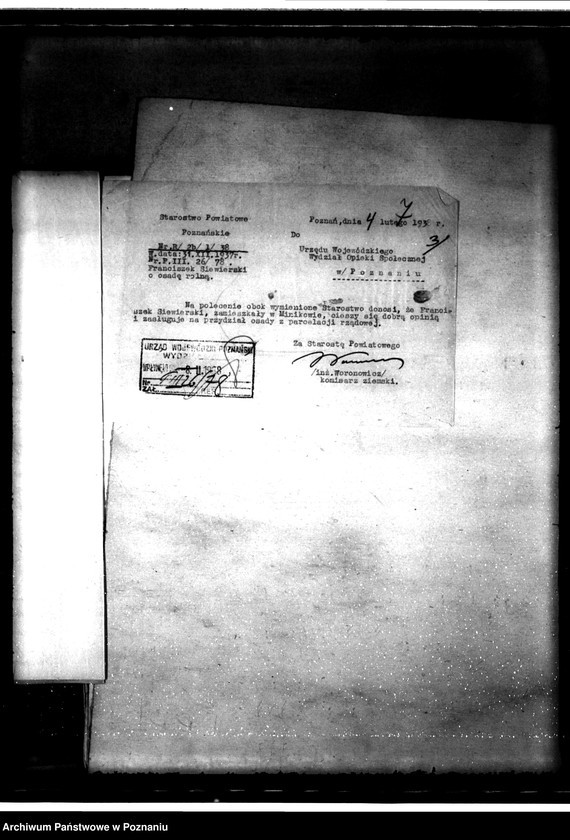 7
Starostwo Powiatowe
Poznańskie
Poznań,dnia 4 lutego 193 r.
Nr.R/ 2b/ 1/ 38
Do
3/
N.data:31.XII.1937r.
Nr.P.III. 26/ 78 .
Franciszek Siewierski
o osadę rolną.
Urzędu Wojewódzkiego
Wydział Opieki Społecznej
w/ P o z n a n i u
Na polecenie obok wymienione Starostwo donosi, że Franci-
szek Siewierski, zamieszkały w Minikowie, cieszy się dobrą opinią
i zasługuje na przydział osady z parcelacji rządowej.
Za Starostę Powiatowego
/inż.Woronowicz/
komisarz ziemski.
URZĄD WOJEWÓDZKI POZNAŃSKI
WPŁYNĘŁO 8 II 1938
Nr. 26/78
ZAŁ.
Archiwum Państwowe w Poznaniu